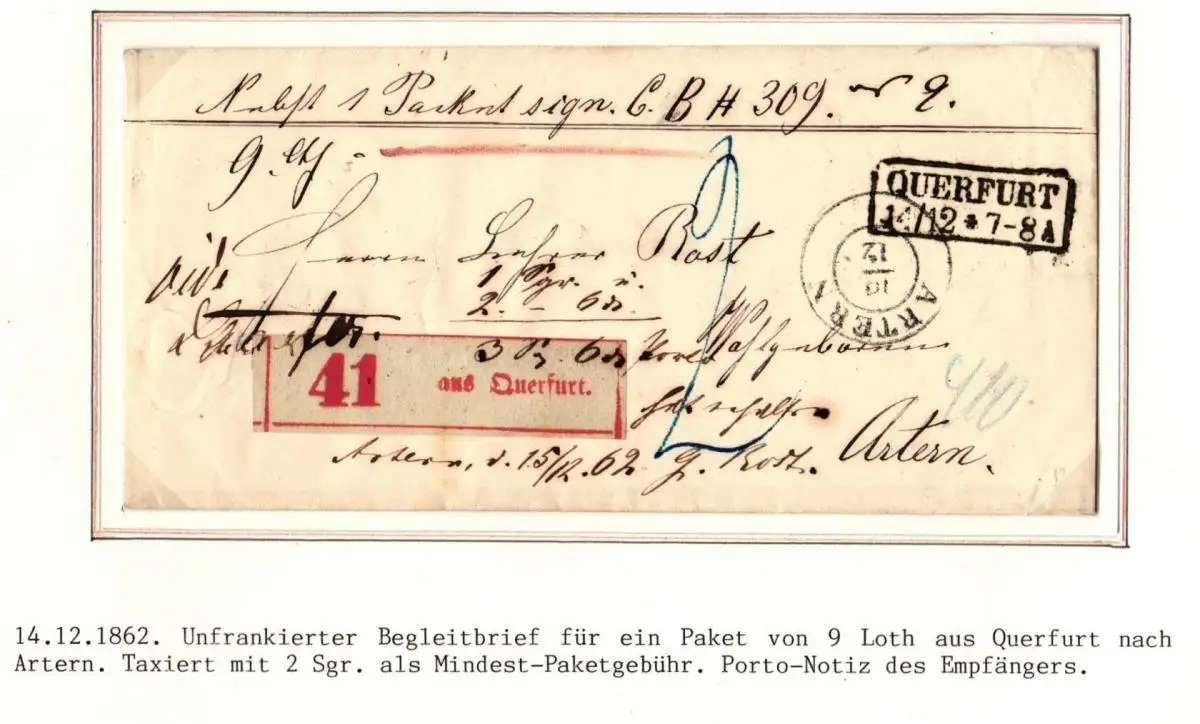 Nebst 1 Packet sign. C. B # 309. 9.
9 Lth
QUERFURT
14/12 * 7-8 A
Herrn Lehrer Rost
1 Sgr. u.
2. - 6 d.
3 Sg 6 d
Wohlgeboren
ARTERN
12
41 aus Querfurt.
410
2
erhalten
Artern.
Artern, d. 15/12. 62. G. Rost.
14.12.1862. Unfrankierter Begleitbrief für ein Paket von 9 Loth aus Querfurt nach
Artern. Taxiert mit 2 Sgr. als Mindest-Paketgebühr. Porto-Notiz des Empfängers.